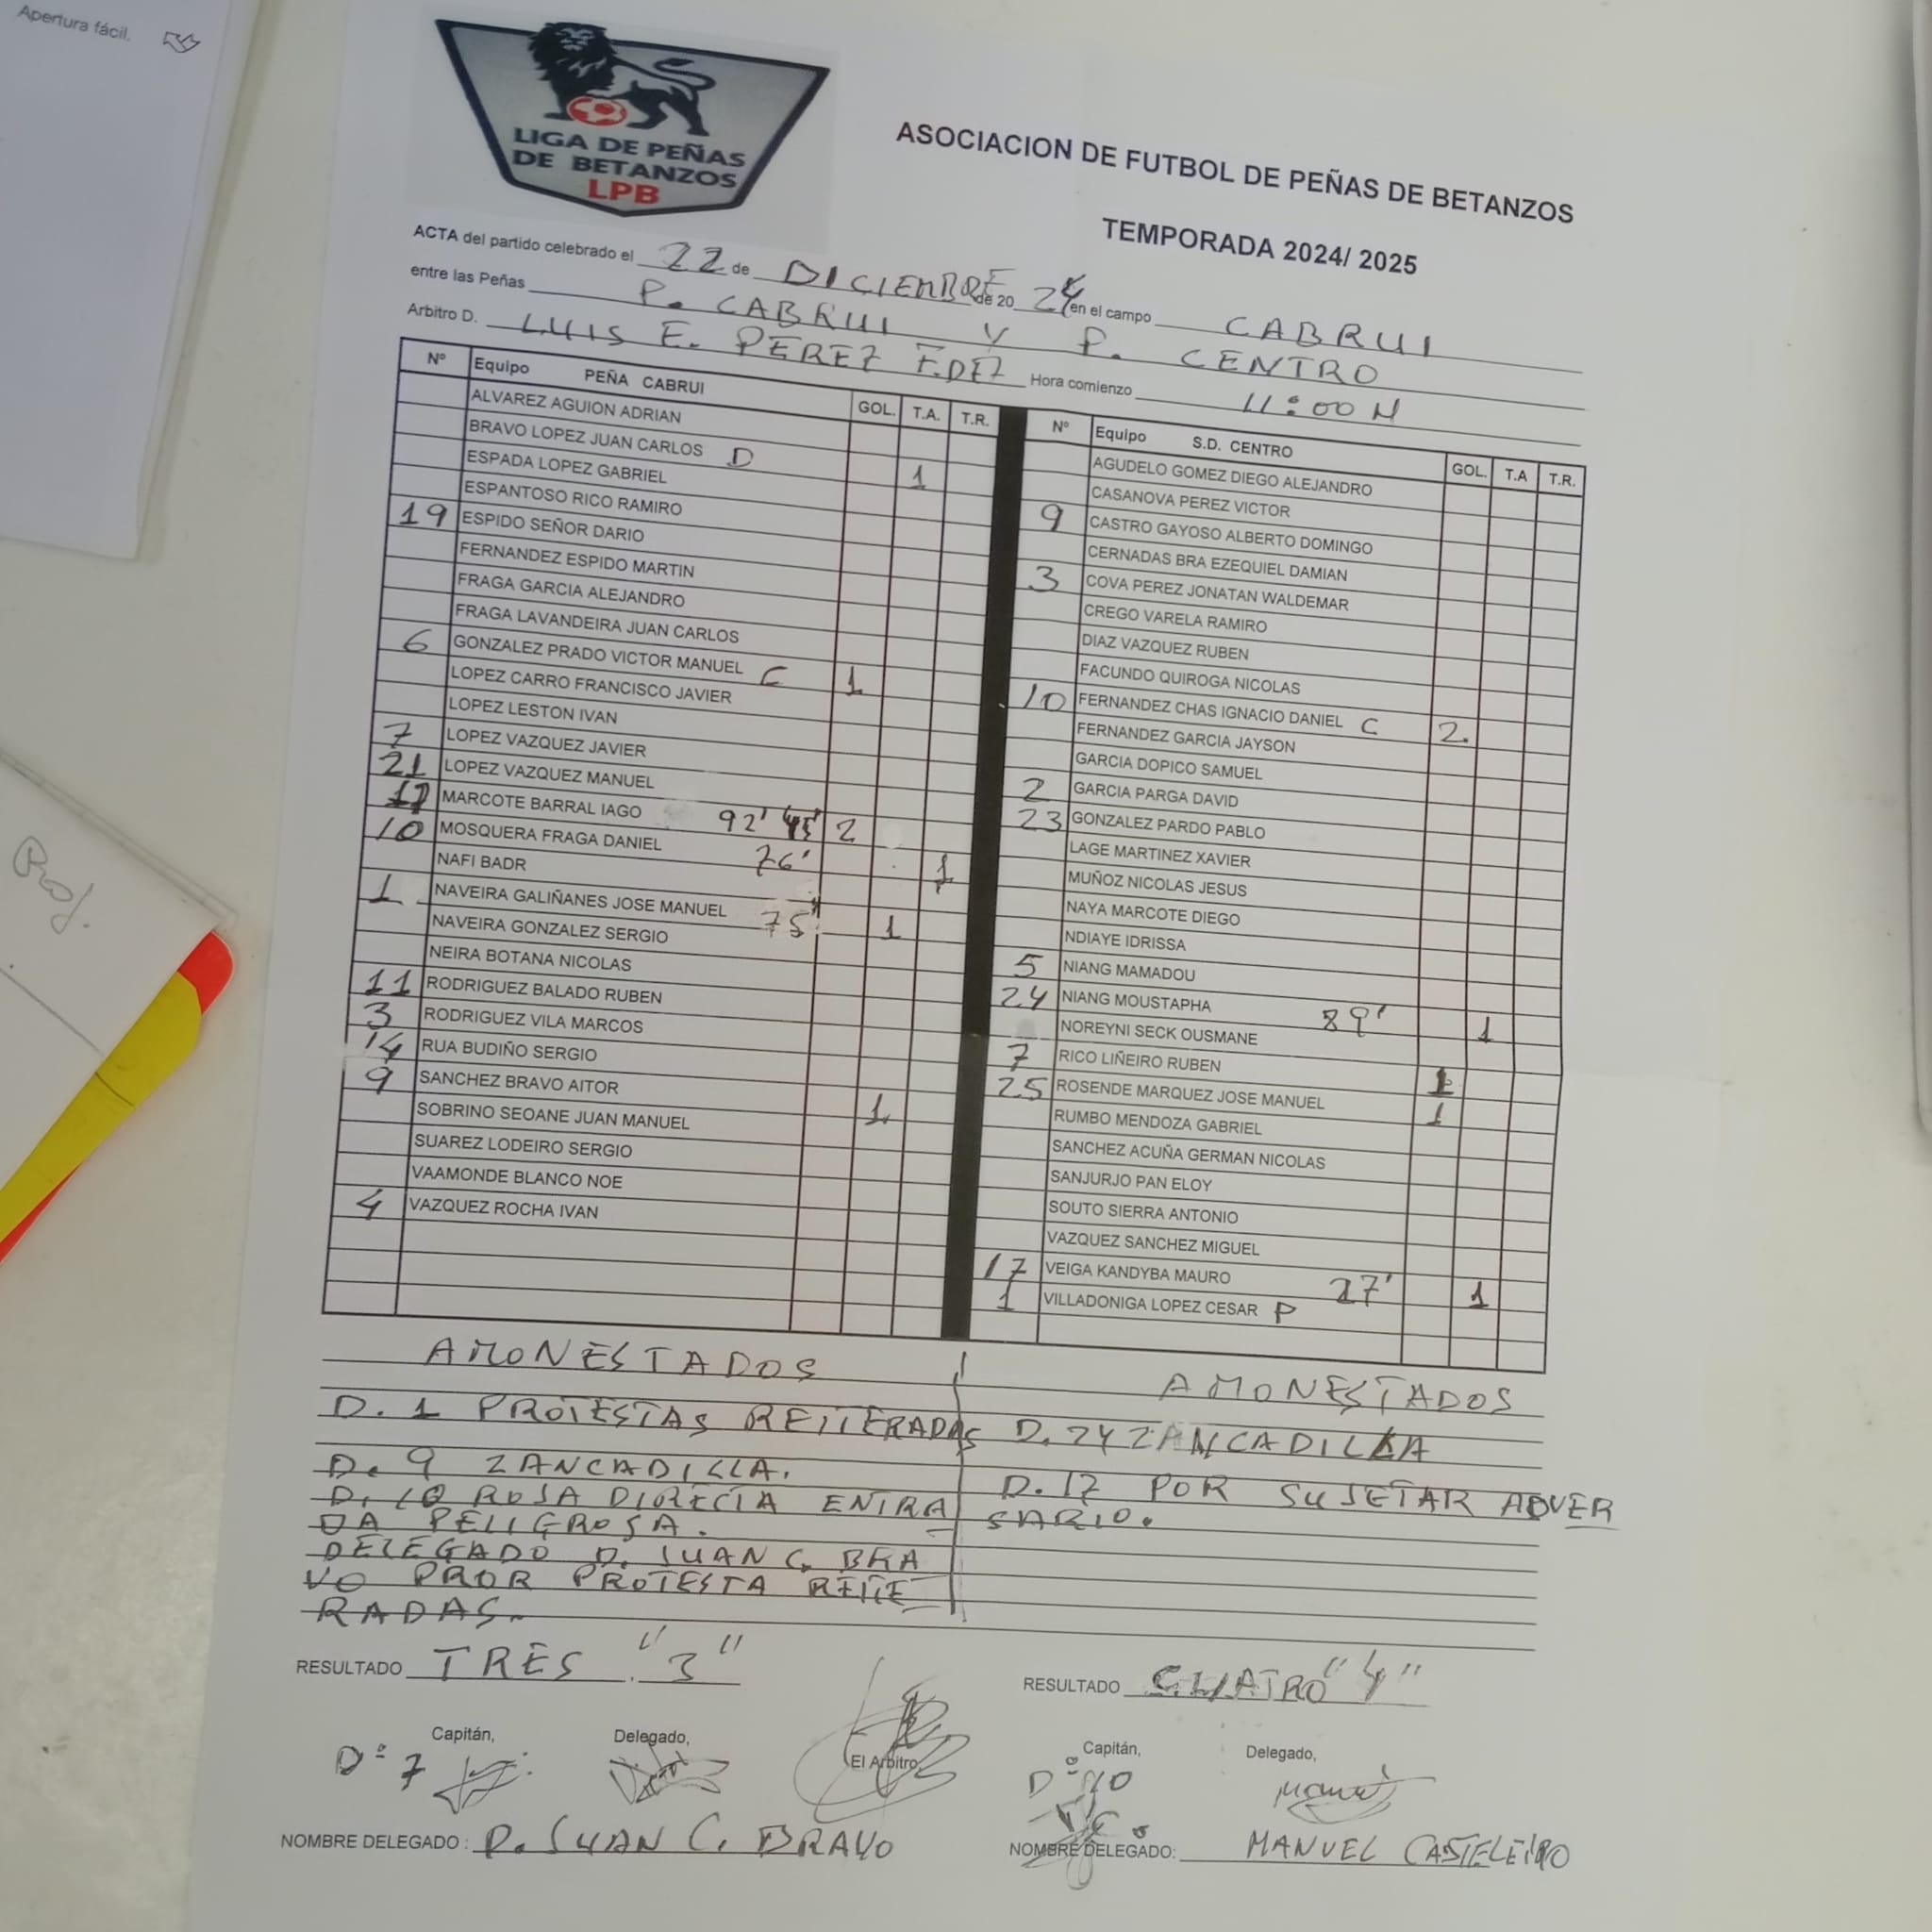 Apertura fácil.
LIGA DE PEÑAS
DE BETANZOS
LPB
ASOCIACION DE FUTBOL DE PEÑAS DE BETANZOS
TEMPORADA 2024/ 2025
ACTA del partido celebrado el 22 de DICIEMBRE de 20 24 en el campo CABRUI
entre las Peñas P. CABRUI Y P. CENTRO
Arbitro D. LUIS E. PEREZ F.DEZ Hora comienzo 11:00 H
Nº Equipo PEÑA CABRUI GOL. T.A. T.R.
ALVAREZ AGUION ADRIAN
BRAVO LOPEZ JUAN CARLOS D 1
ESPADA LOPEZ GABRIEL
ESPANTOSO RICO RAMIRO
19 ESPIDO SEÑOR DARIO
FERNANDEZ ESPIDO MARTIN
FRAGA GARCIA ALEJANDRO
FRAGA LAVANDEIRA JUAN CARLOS
6 GONZALEZ PRADO VICTOR MANUEL C 1
LOPEZ CARRO FRANCISCO JAVIER
LOPEZ LESTON IVAN
7 LOPEZ VAZQUEZ JAVIER
21 LOPEZ VAZQUEZ MANUEL
17 MARCOTE BARRAL IAGO 92' 45' 2
10 MOSQUERA FRAGA DANIEL 76' 1
NAFI BADR
1 NAVEIRA GALIÑANES JOSE MANUEL 75' 1
NAVEIRA GONZALEZ SERGIO
NEIRA BOTANA NICOLAS
11 RODRIGUEZ BALADO RUBEN
3 RODRIGUEZ VILA MARCOS
14 RUA BUDIÑO SERGIO
9 SANCHEZ BRAVO AITOR 1
SOBRINO SEOANE JUAN MANUEL
SUAREZ LODEIRO SERGIO
VAAMONDE BLANCO NOE
4 VAZQUEZ ROCHA IVAN
Nº Equipo S.D. CENTRO GOL. T.A T.R.
AGUDELO GOMEZ DIEGO ALEJANDRO
CASANOVA PEREZ VICTOR
9 CASTRO GAYOSO ALBERTO DOMINGO
CERNADAS BRA EZEQUIEL DAMIAN
3 COVA PEREZ JONATAN WALDEMAR
CREGO VARELA RAMIRO
DIAZ VAZQUEZ RUBEN
FACUNDO QUIROGA NICOLAS
10 FERNANDEZ CHAS IGNACIO DANIEL C 2.
FERNANDEZ GARCIA JAYSON
GARCIA DOPICO SAMUEL
2 GARCIA PARGA DAVID
23 GONZALEZ PARDO PABLO
LAGE MARTINEZ XAVIER
MUÑOZ NICOLAS JESUS
NAYA MARCOTE DIEGO
NDIAYE IDRISSA
5 NIANG MAMADOU
24 NIANG MOUSTAPHA 89' 1
NOREYNI SECK OUSMANE
7 RICO LIÑEIRO RUBEN 1
25 ROSENDE MARQUEZ JOSE MANUEL 1
RUMBO MENDOZA GABRIEL
SANCHEZ ACUÑA GERMAN NICOLAS
SANJURJO PAN ELOY
SOUTO SIERRA ANTONIO
VAZQUEZ SANCHEZ MIGUEL
17 VEIGA KANDYBA MAURO 27' 1
1 VILLADONIGA LOPEZ CESAR P
AMONESTADOS
D. 1 PROTESTAS REITERADAS
D. 9 ZANCADILLA.
D. 10 ROJA DIRECTA ENTRA
DA PELIGROSA.
DELEGADO D. JUAN C. BRA
VO PROR PROTESTA REITE
RADAS.
AMONESTADOS
D. 24 ZANCADILLA
D. 17 POR SUJETAR ADVER
SARIO.
RESULTADO TRES "3"
RESULTADO CUATRO "4"
Capitán, Delegado, El Arbitro, Capitán, Delegado,
Dº 7
Dº 10
NOMBRE DELEGADO : D. JUAN C. BRAVO
NOMBRE DELEGADO: MANUEL CASTELEIRO